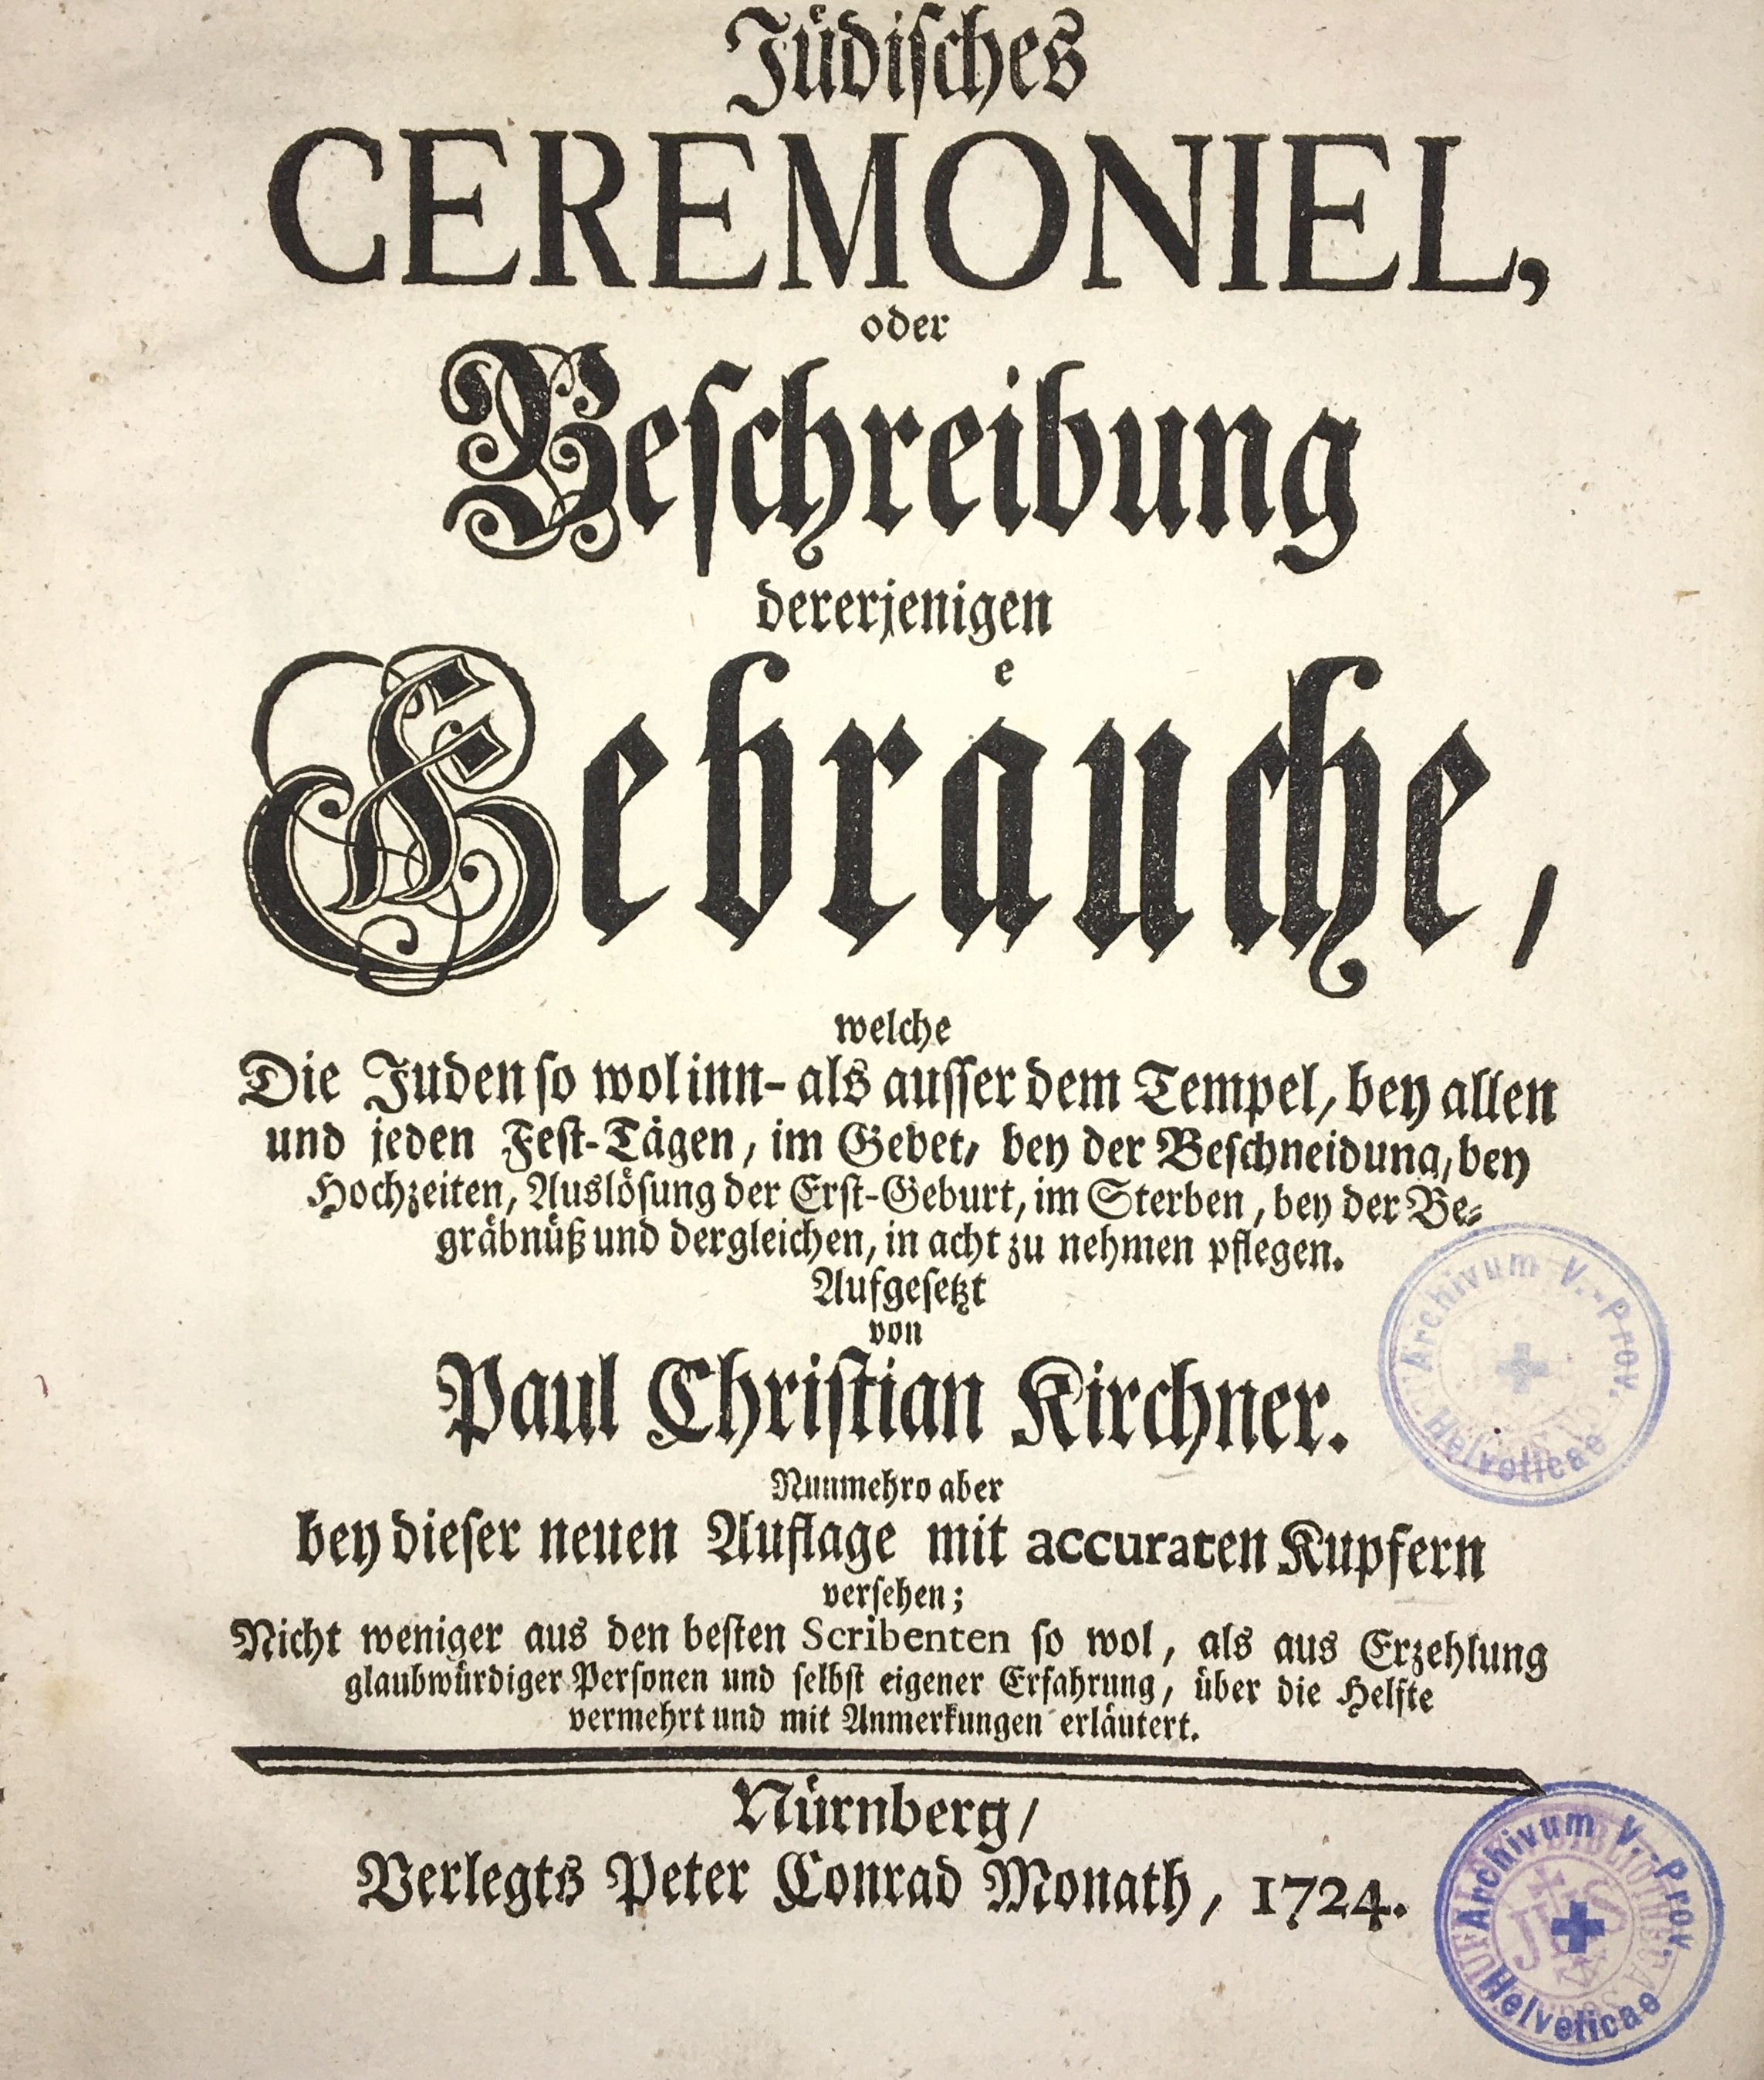 Jüdisches
CEREMONIEL,
oder
Beschreibung
dererjenigen
Gebräuche,
welche
Die Juden so wol inn- als ausser dem Tempel, bey allen
und jeden Fest-Tägen, im Gebet, bey der Beschneidung, bey
Hochzeiten, Auslösung der Erst-Geburt, im Sterben, bey der Be-
gräbnüß und dergleichen, in acht zu nehmen pflegen.
Aufgesetzt
von
Paul Christian Kirchner.
Nunmehro aber
bey dieser neuen Auflage mit accuraten Kupfern
versehen;
Nicht weniger aus den besten Scribenten so wol, als aus Erzehlung
glaubwürdiger Personen und selbst eigener Erfahrung, über die Helfte
vermehrt und mit Anmerkungen erläutert.
Nürnberg/
Verlegts Peter Conrad Monath, 1724.
Archivum V.-Prov.
Helveticae
Archivum V.-Prov.
Helveticae
JHS